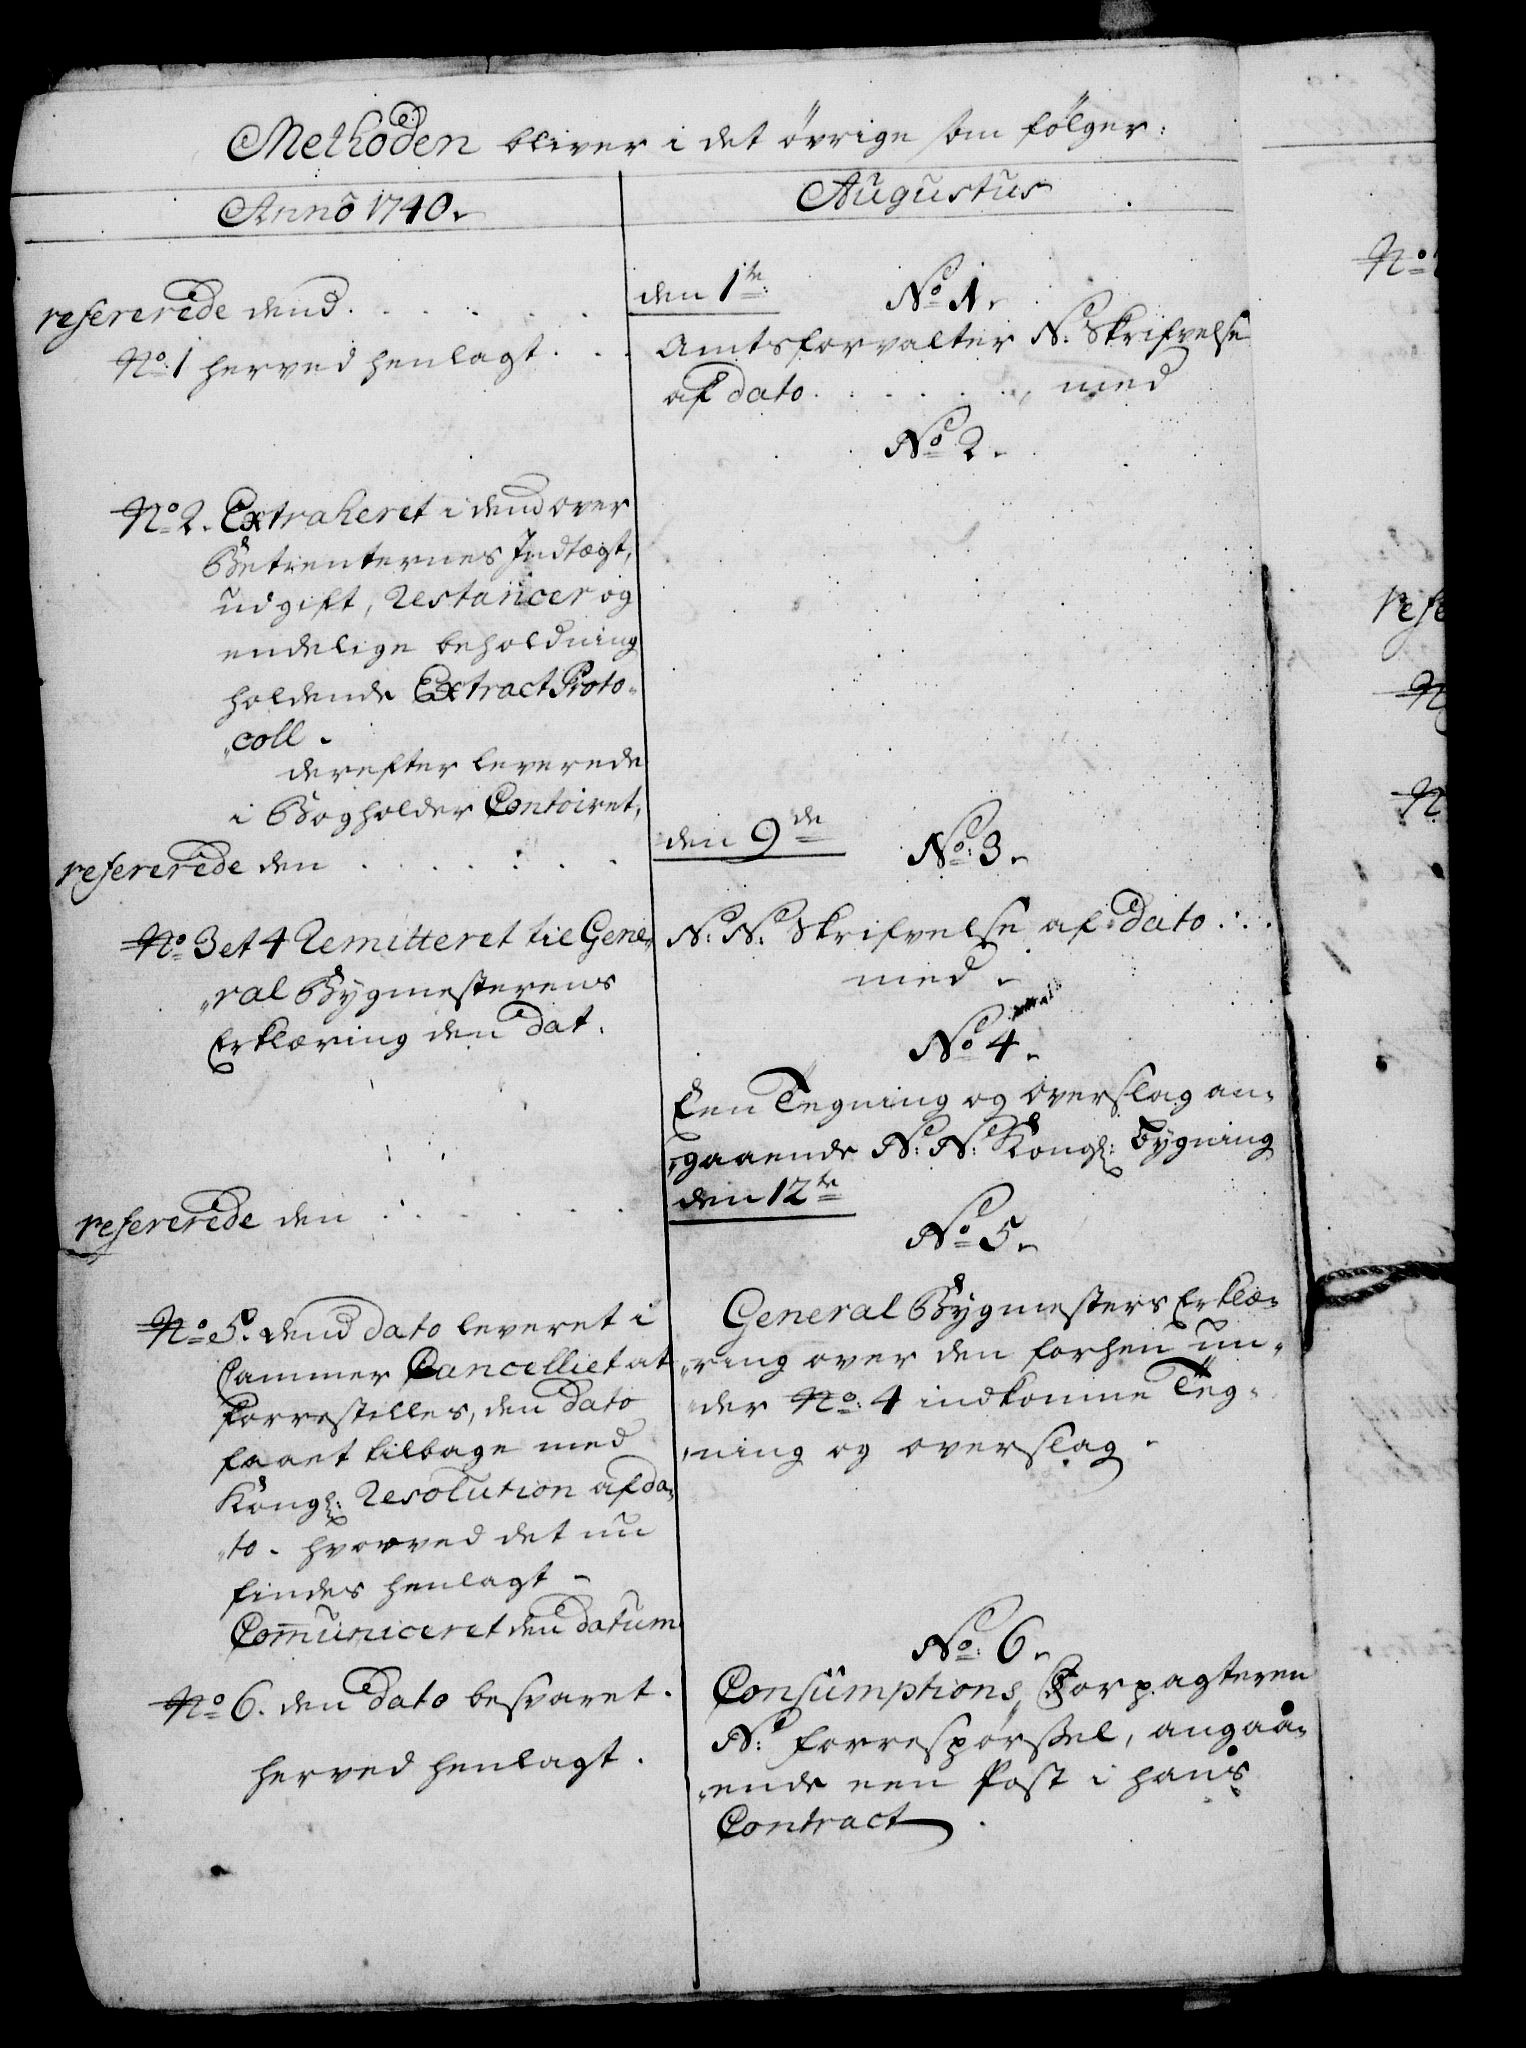 Methoden bliver i det øvrige som følger:
Anno 1740.
refererede dend . . . . . .
No: 1 herved henlagt . . .
No 2. Extraheret i dend over
Betienternes Indtægt,
udgift, Restancer og
endelige beholdning
holdende Extract Proto-
coll.
derefter leverede
i Bogholder Contoiret,
refererede den . . . . . .
No 3 et 4 Remitteret til Gene-
ral Bygmesterens
Erklæring den dat.
refererede den . . . . . .
No 5. dend dato leveret i
Cammer Cancelliet at
forrestilles, den dato
faaet tilbage med
Kongl: Resolution af da-
to. hvorved det nu
findes henlagt -
Com̄uniceret den datum
No 6. den dato besvaret.
herved henlagt.
Augustus
den 1te
No 1.
Amtsforvalter N: Skrifvelse
af dato . . . . . . , med
No 2.
den 9de
No: 3.
N: N: Skrifvelse af dato . : .
med -
No 4.
Een Tegning og overslag an-
gaaende N: N: Kongl: bygning
den 12te
No 5.
General Bygmesters Erklæ-
ring over den forhen un-
der No: 4 indkomne Teg-
ning og overslag.
No: 6.
Consumptions Forpagteren
N: forrespørssel, angaa-
ende een Post i hans
Contract.
No
refe
N
N